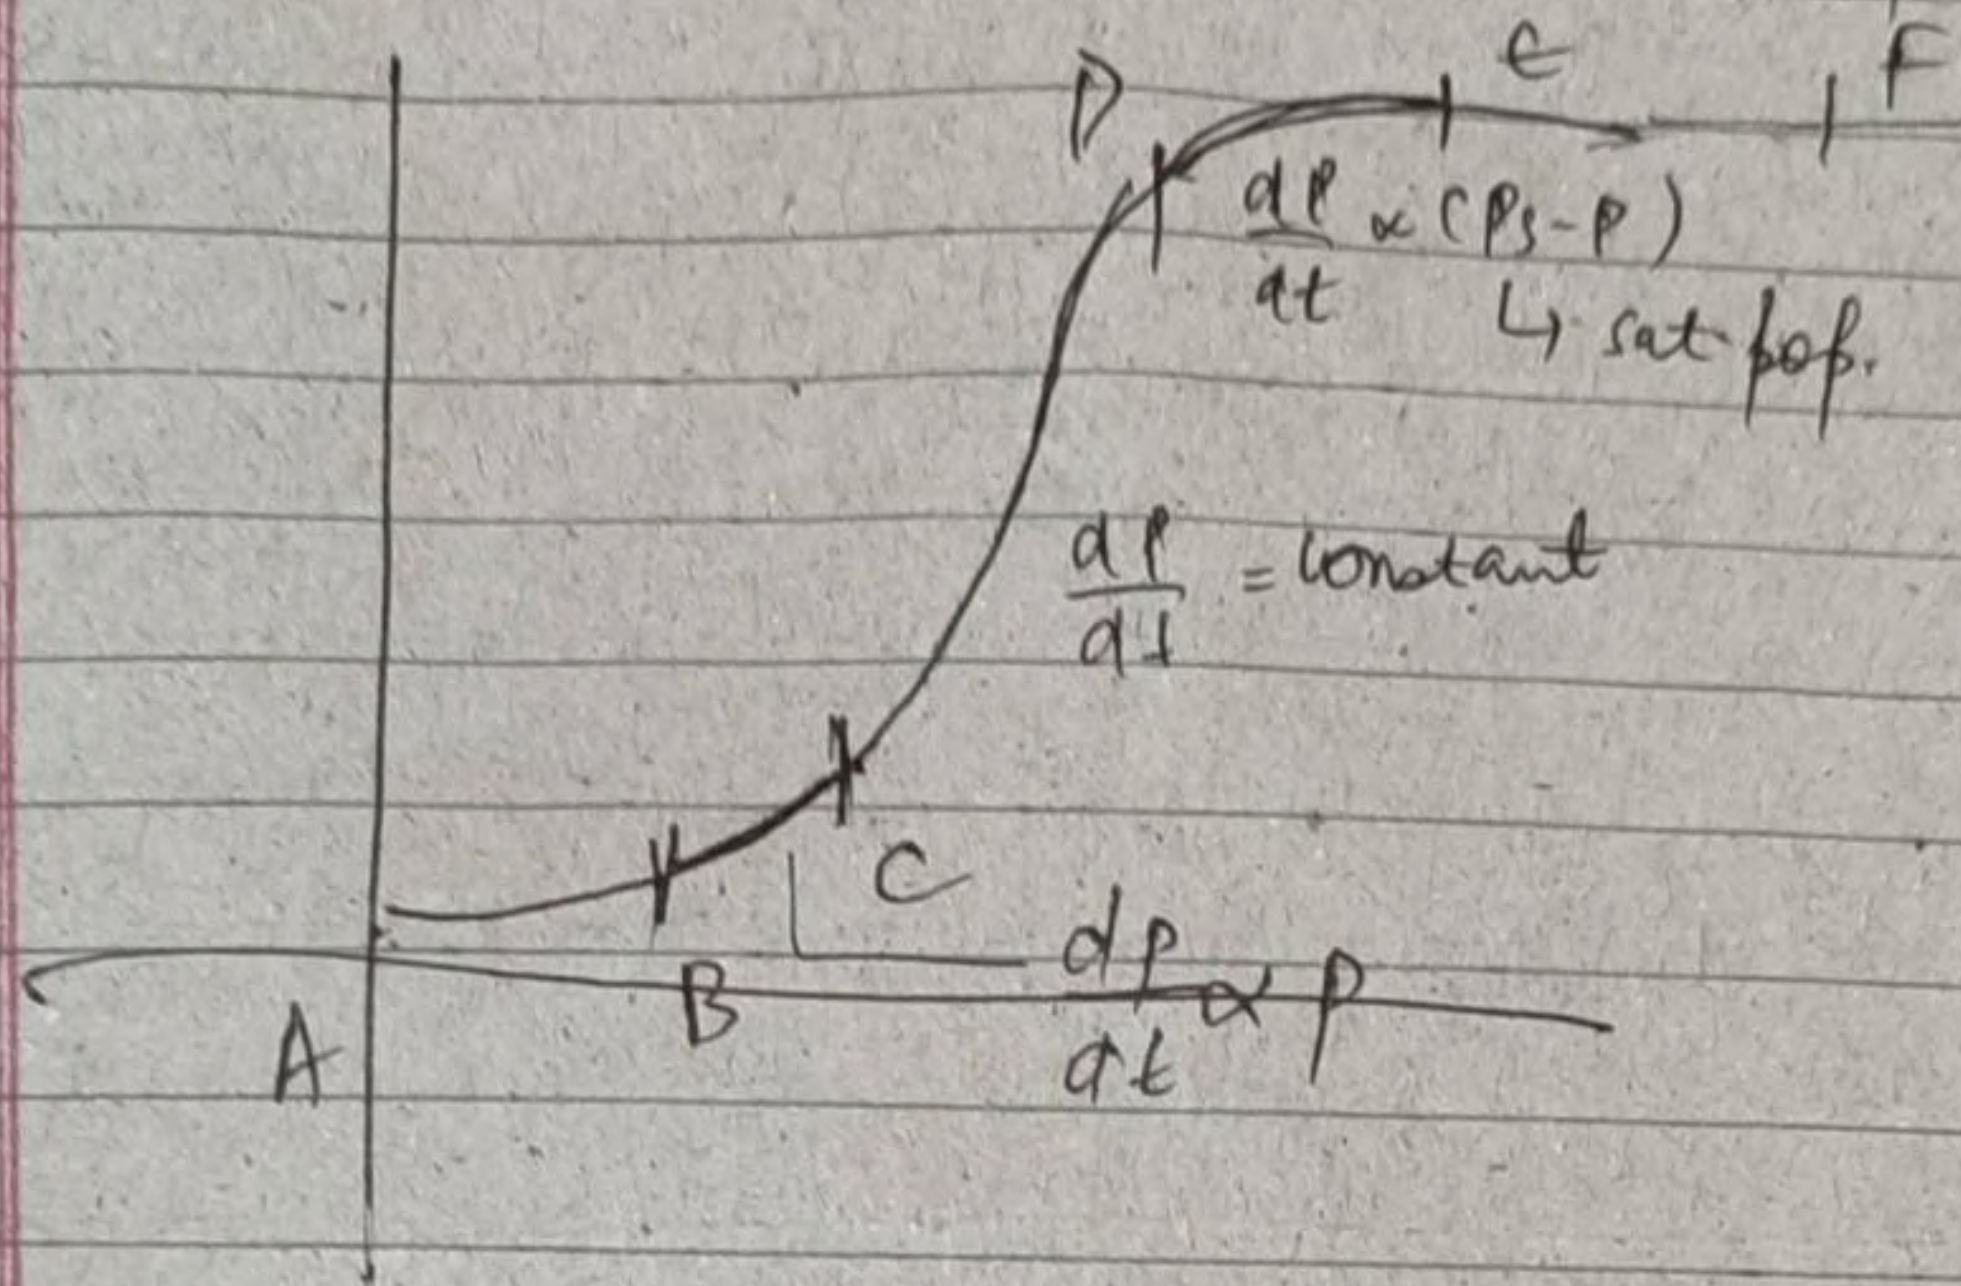 D E F
dP/dt ∝ (Ps-P)
↳ sat pop.
dP/dt = constant
C
dP/dt ∝ P
B
A